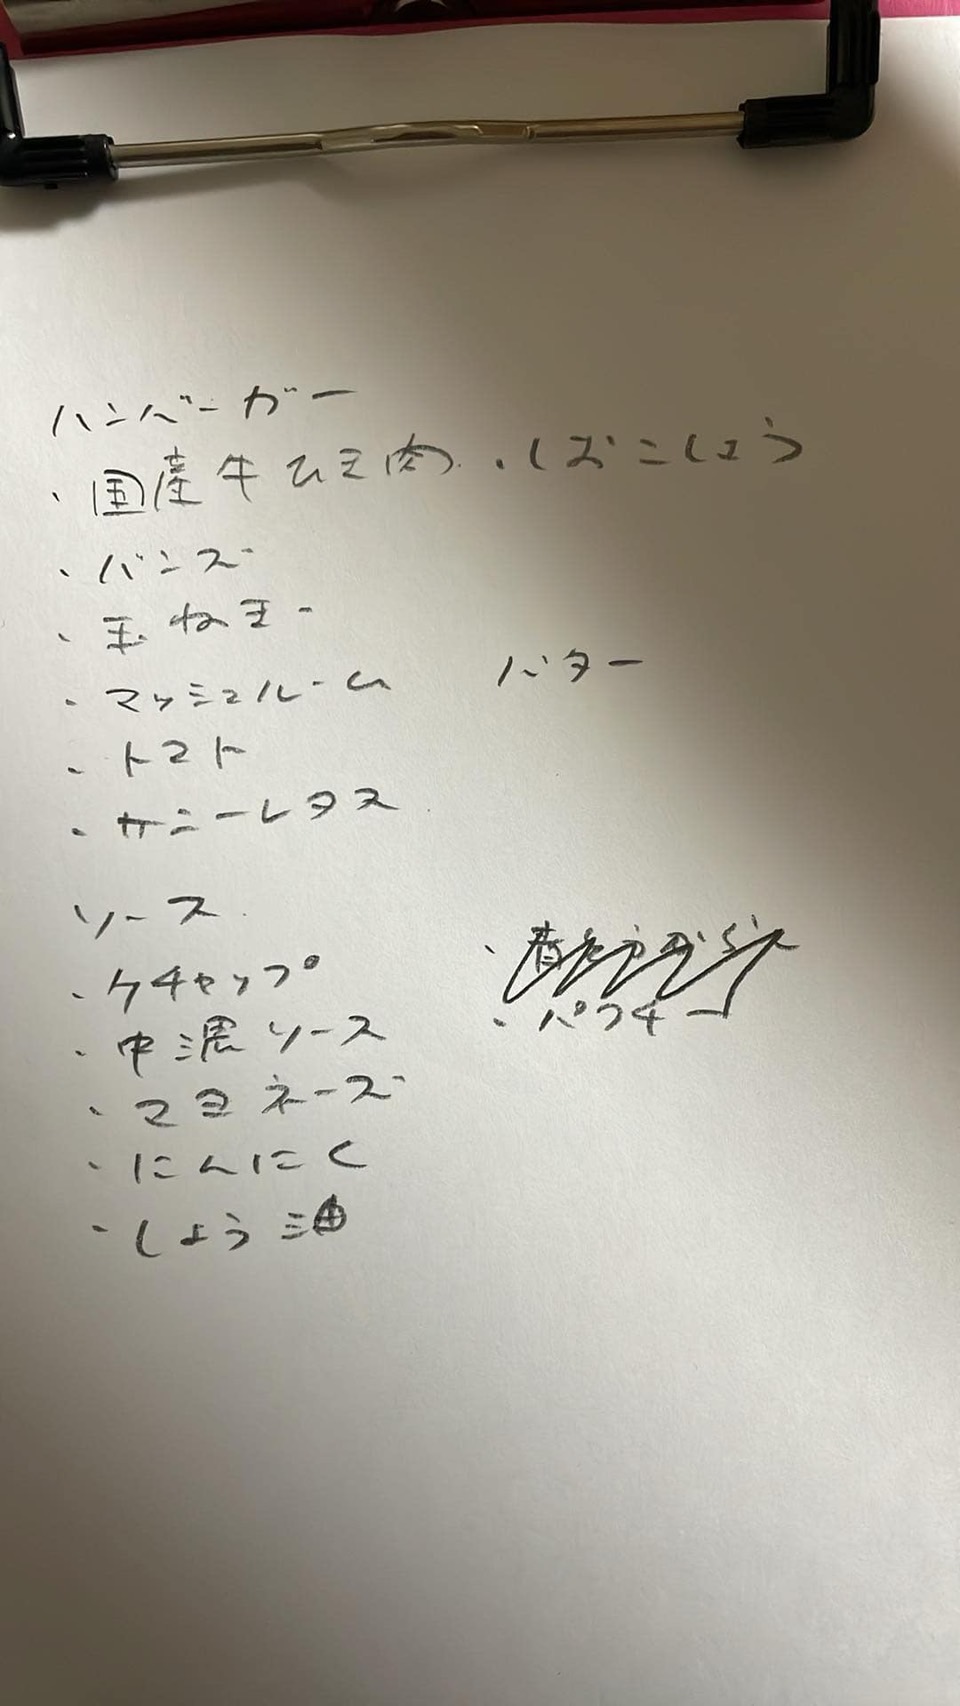 ハンバーガー
・国産牛ひき肉 ・しおこしょう
・バンズ
・玉ねぎ
・マッシュルーム バター
・トマト
・サニーレタス
ソース
・ケチャップ
・パクチー
・中濃ソース
・マヨネーズ
・にんにく
・しょう油